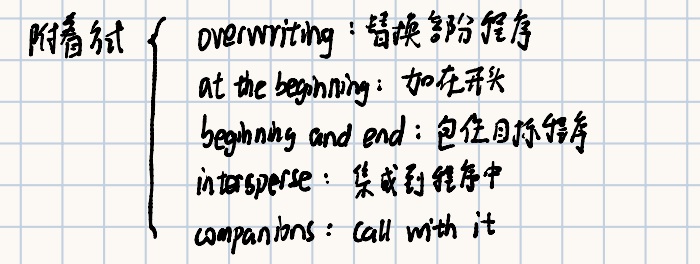 附着方式
overwriting：替换部份程序
at the beginning：加在开头
beginning and end：包住目标程序
intersperse：集成到程序中
companions：call with it